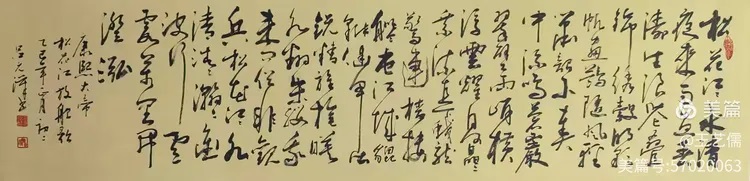 松花江江水清
夜来雨过春
涛生浪花叠
锦绣縠明彩
帆画鹢随风轻
箫韶小奏
中流鸣苍岩
翠壁两岸横
浮云耀日何晶晶
乘流直下蛟龙
惊连樯接
舰屯江城貔
貅健甲皆
锐精旌旄映
水翻朱缨我
来问俗非观
兵松花江江水
清浩浩瀚瀚冲
波行云
霞万里开
澄泓
康熙大帝
松花江放船歌
乙巳年正月初
美篇
美篇号:57020063